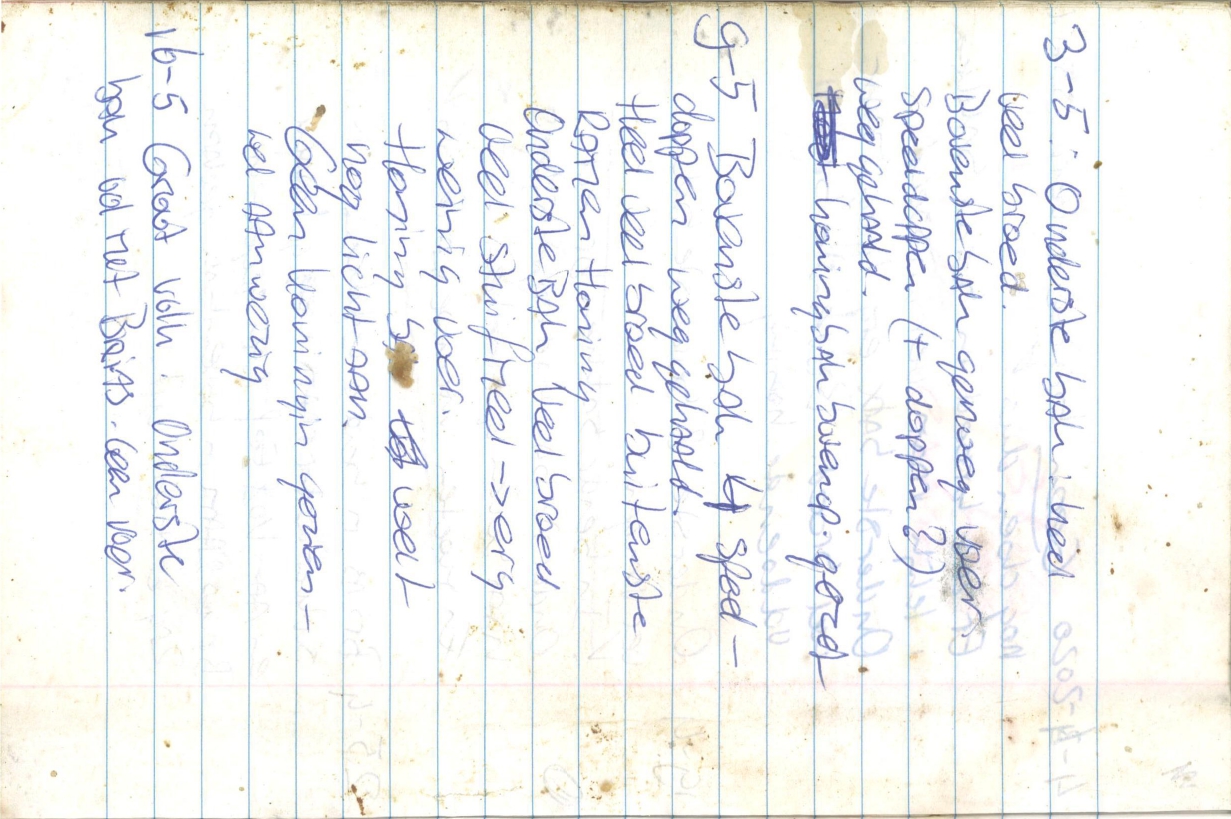 3-5: Onderste bak: heel
veel broed.
Bovenste bak genoeg voer.
Speeldoppen (+ doppen?)
weggehaald.
honingbak bovenop gezet
9-5 Bovenste bak 4 speel-
doppen weggehaald.
Heel veel broed buitenste
Ramen Honing
Onderste Bak Veel broed
Veel stuifmeel -> erg
weinig voer.
Honing b voelt
nog licht aan.
Geen Koningin gezien -
wel aanwezig
16-5 Groot volk. Onderste
bak vol met Broed. Geen voer.